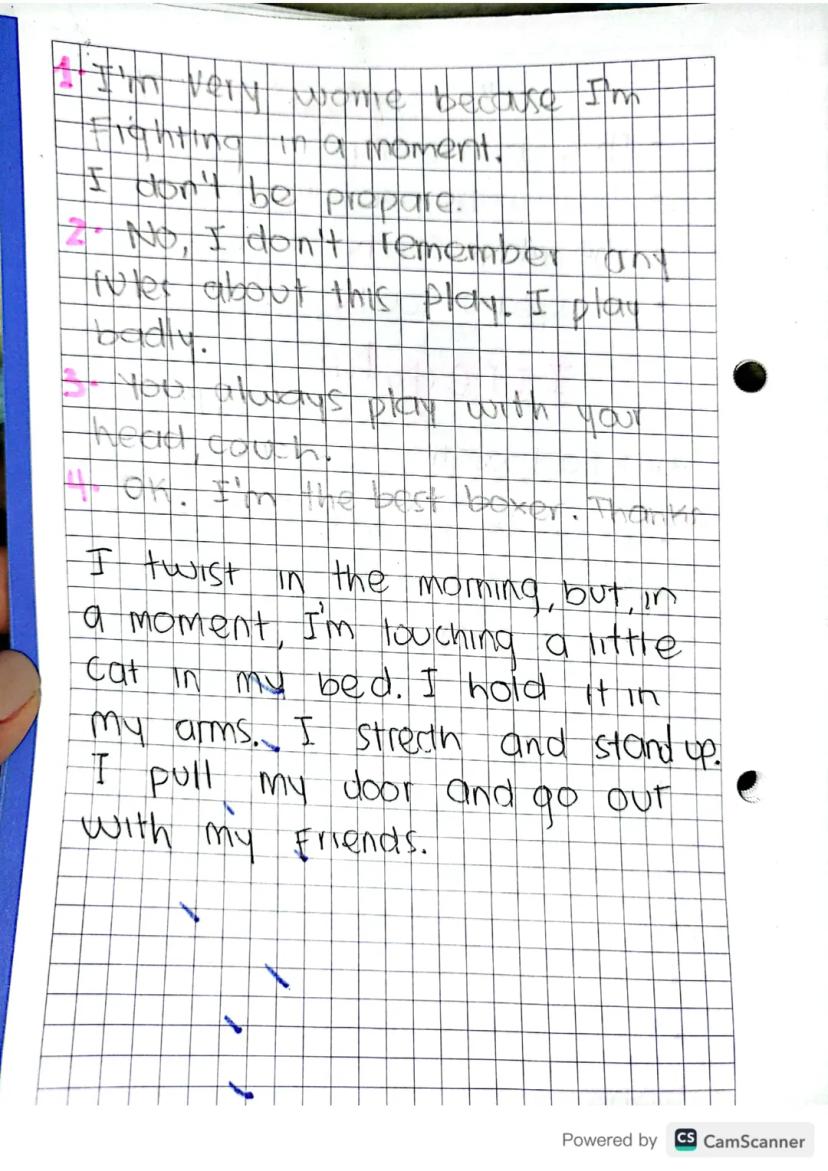 1- I'm very worrie because I'm
Fighting in a moment.
I don't be prepare.
2- No, I don't remember any
rules about this play. I play
badly.
3- You always play with your
head, couch.
4- OK. I'm the best boxer. Thanks
I twist in the morning, but, in
a moment, I'm touching a little
cat in my bed. I hold it in
my arms. I strecth and stand up.
I pull my door and go out
with my Friends.
Powered by CS CamScanner